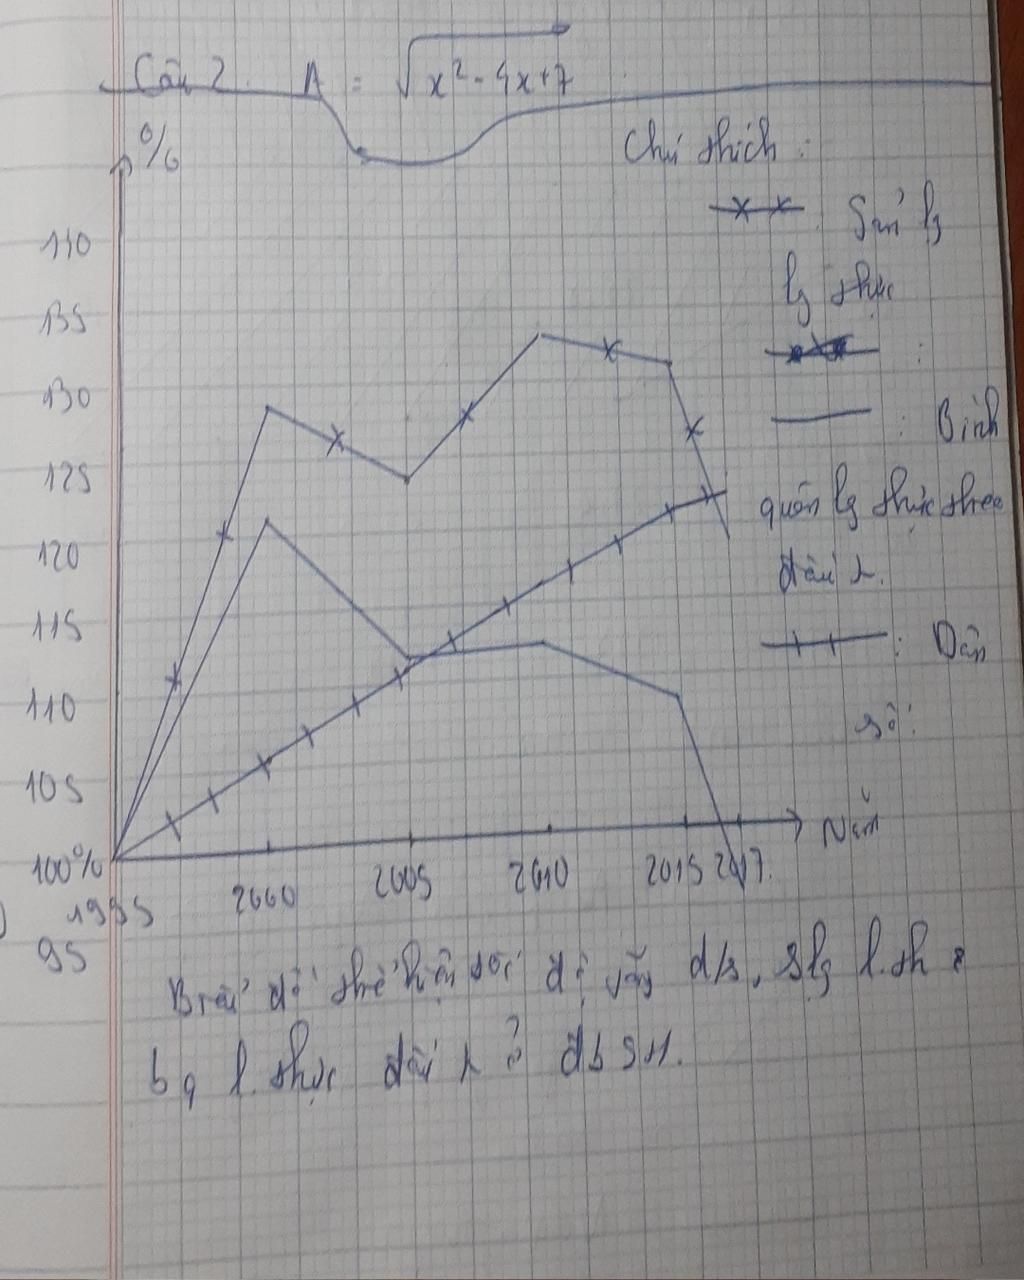 Câu 2. A = √x² - 4x + 7
%
Chú thích :
Sản lg
lg thực
:
: Bình
quân lg thực theo
đầu
: Dân
số.
140
135
130
125
120
115
110
105
100%
95
Năm
1995 2000 2005 2010 2015 2017
Biểu đồ thể hiện tốc độ tăng d/s, slg l.th &
bq l. thực đầu ở đb SH.